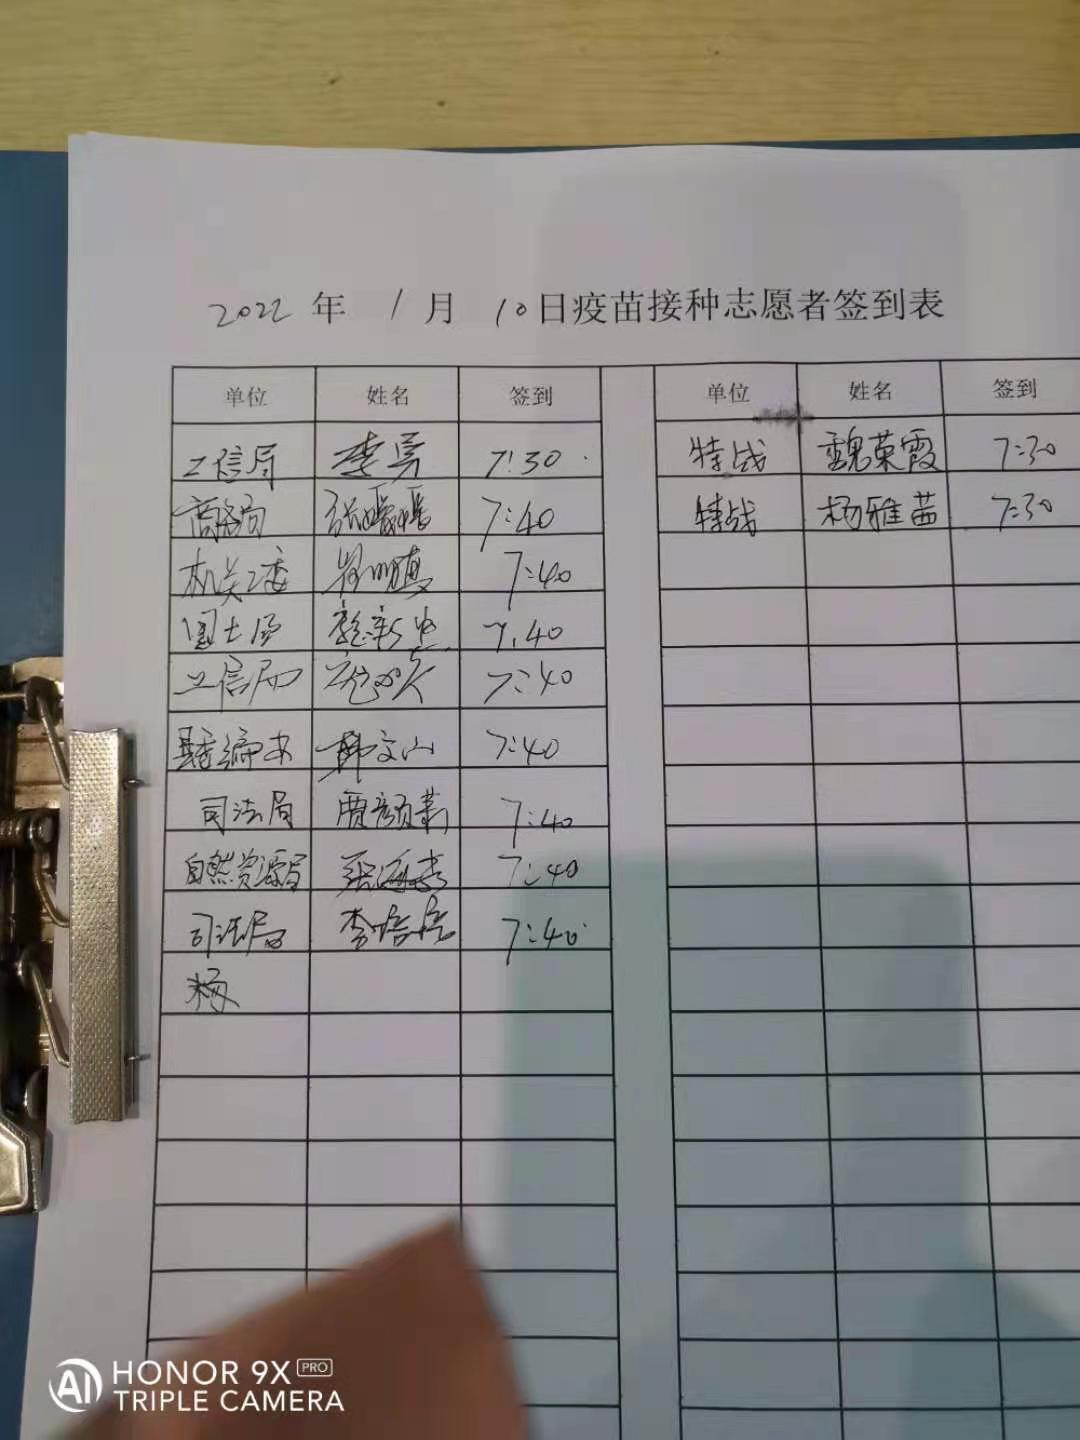 2022 年 1 月 10日疫苗接种志愿者签到表
单位 姓名 签到 单位 姓名 签到
工信局 李勇 7:30 特战 魏荣霞 7:30
商务局 7:40 特战 杨雅茜 7:30
机关工委 7:40
国土局 7.40
工信局 7:40
县委编办 韩文山 7:40
司法局 贾颜菊 7:40
自然资源局 7:40
司法局 李培培 7:40
杨
AI HONOR 9X PRO
TRIPLE CAMERA